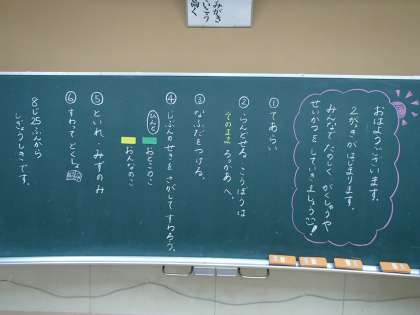 おはようございます。
2がっきがはじまります。
みんなで たのしく がくしゅうや
せいかつをしていきましょうね!
①てあらい
②らんどせる こうぼうは
そのまま ろっかあへ。
③なふだをつける。
④じぶんのせきをさがしてすわろう。
ひんと
おとこのこ
おんなのこ
⑤といれ・みずのみ
⑥すわって どくしょ
8じ25ふんから
しぎょうしきです。